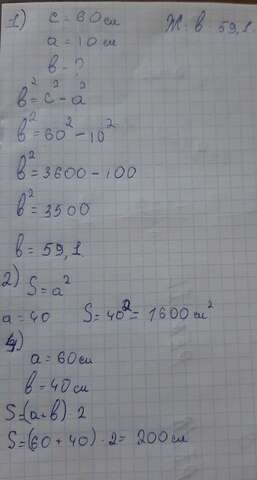 1) c = 60 см
Ж: в 59,1
a = 10 см
в - ?
в² = c² - a²
в² = 60² - 10²
в² = 3600 - 100
в² = 3500
в = 59,1
2) S = a²
a = 40 S = 40² = 1600 см²
4)
a = 60 см
в = 40 см
S = (a + в) · 2
S = (60 + 40) · 2 = 200 см